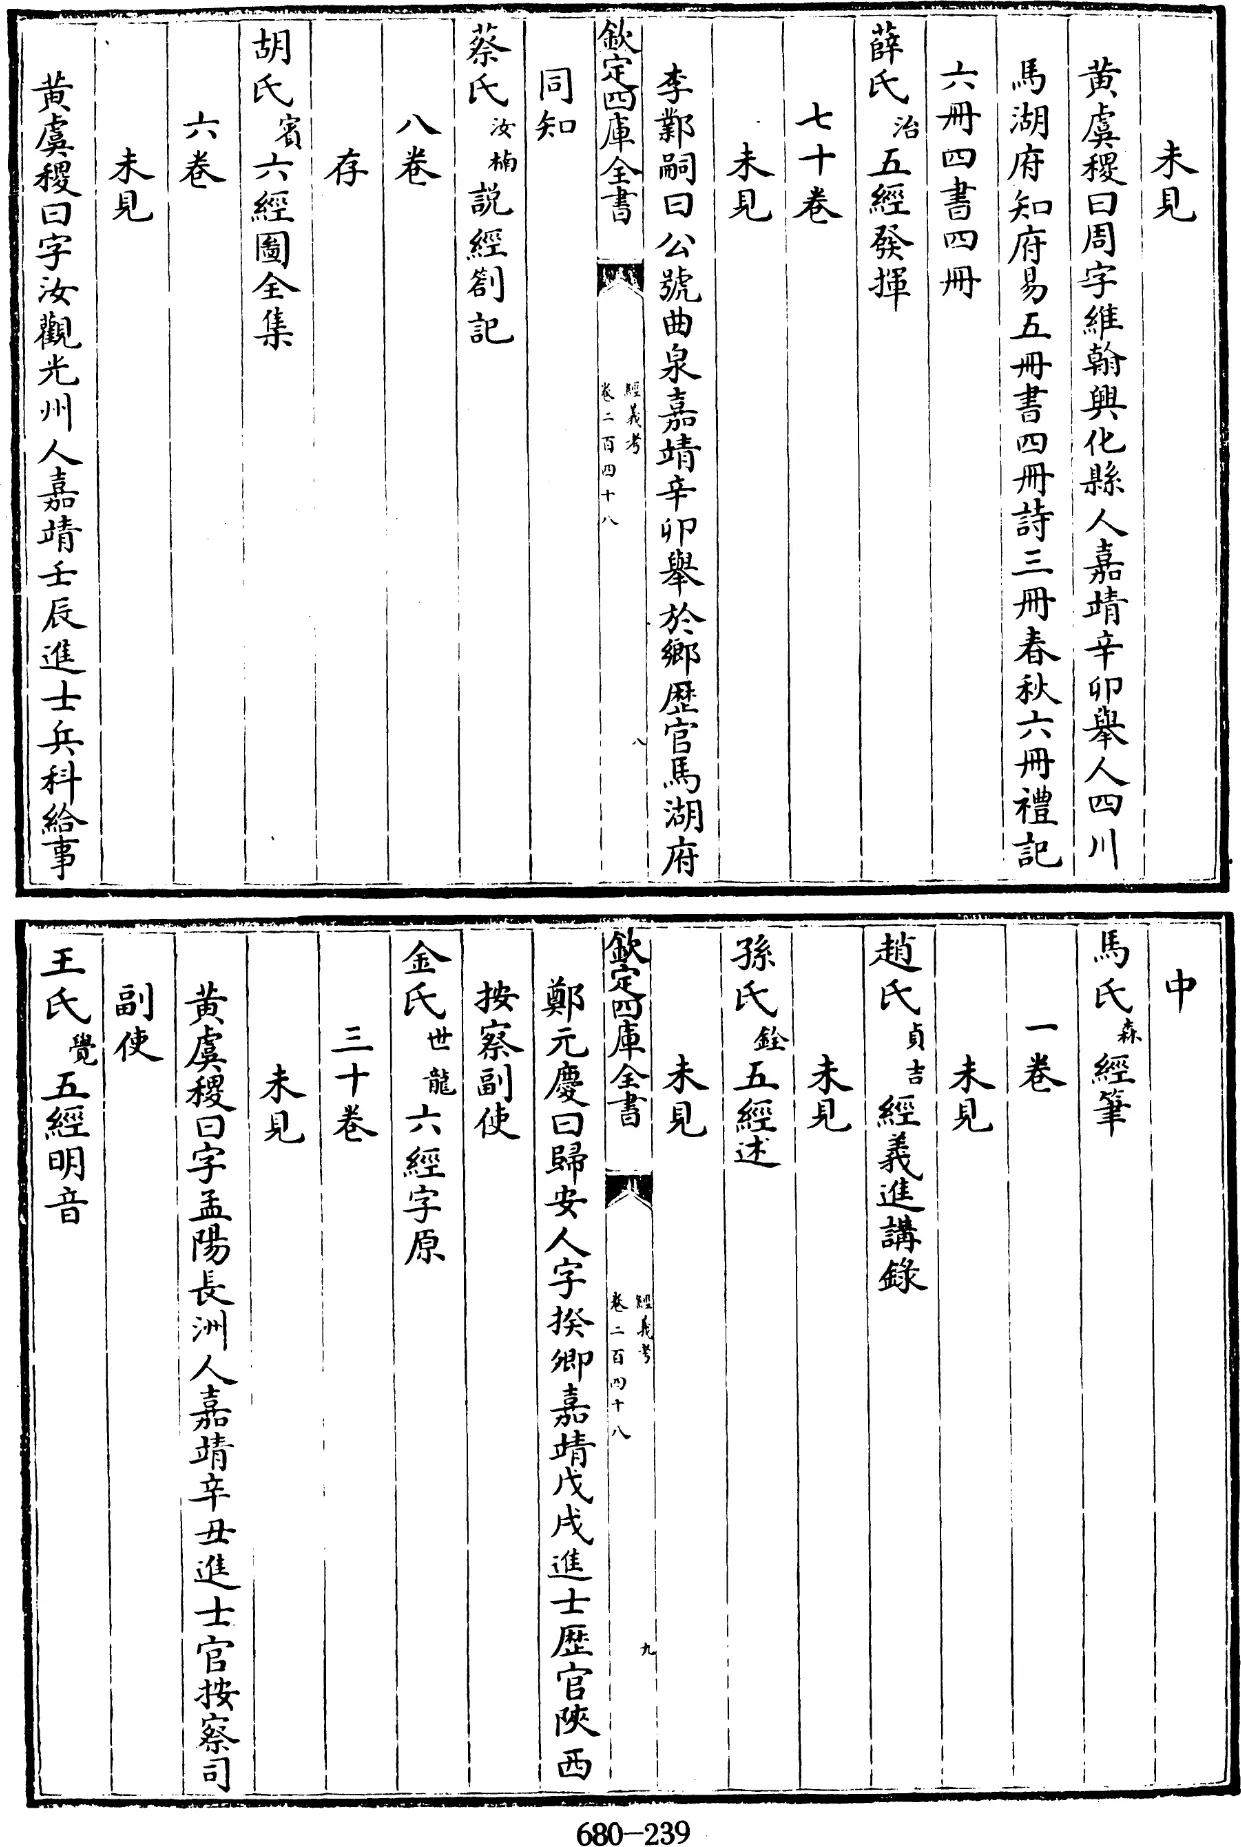 未見
黄虞稷曰周字維翰興化縣人嘉靖辛卯舉人四川
馬湖府知府易五冊書四冊詩三冊春秋六冊禮記
六冊四書四冊
薛氏治五經發揮
七十卷
未見
李鄴嗣曰公號曲泉嘉靖辛卯舉於鄉歷官馬湖府
欽定四庫全書
經義考
卷二百四十八
八
同知
蔡氏汝楠説經劄記
八卷
存
胡氏賓六經圖全集
六卷
未見
黄虞稷曰字汝觀光州人嘉靖壬辰進士兵科給事
中
馬氏森經筆
一卷
未見
趙氏貞吉經義進講錄
未見
孫氏銓五經述
未見
欽定四庫全書
經義考
卷二百四十八
九
鄭元慶曰歸安人字揆卿嘉靖戊戌進士歷官陜西
按察副使
金氏世龍六經字原
三十卷
未見
黄虞稷曰字孟陽長洲人嘉靖辛丑進士官按察司
副使
王氏覺五經明音
680-239